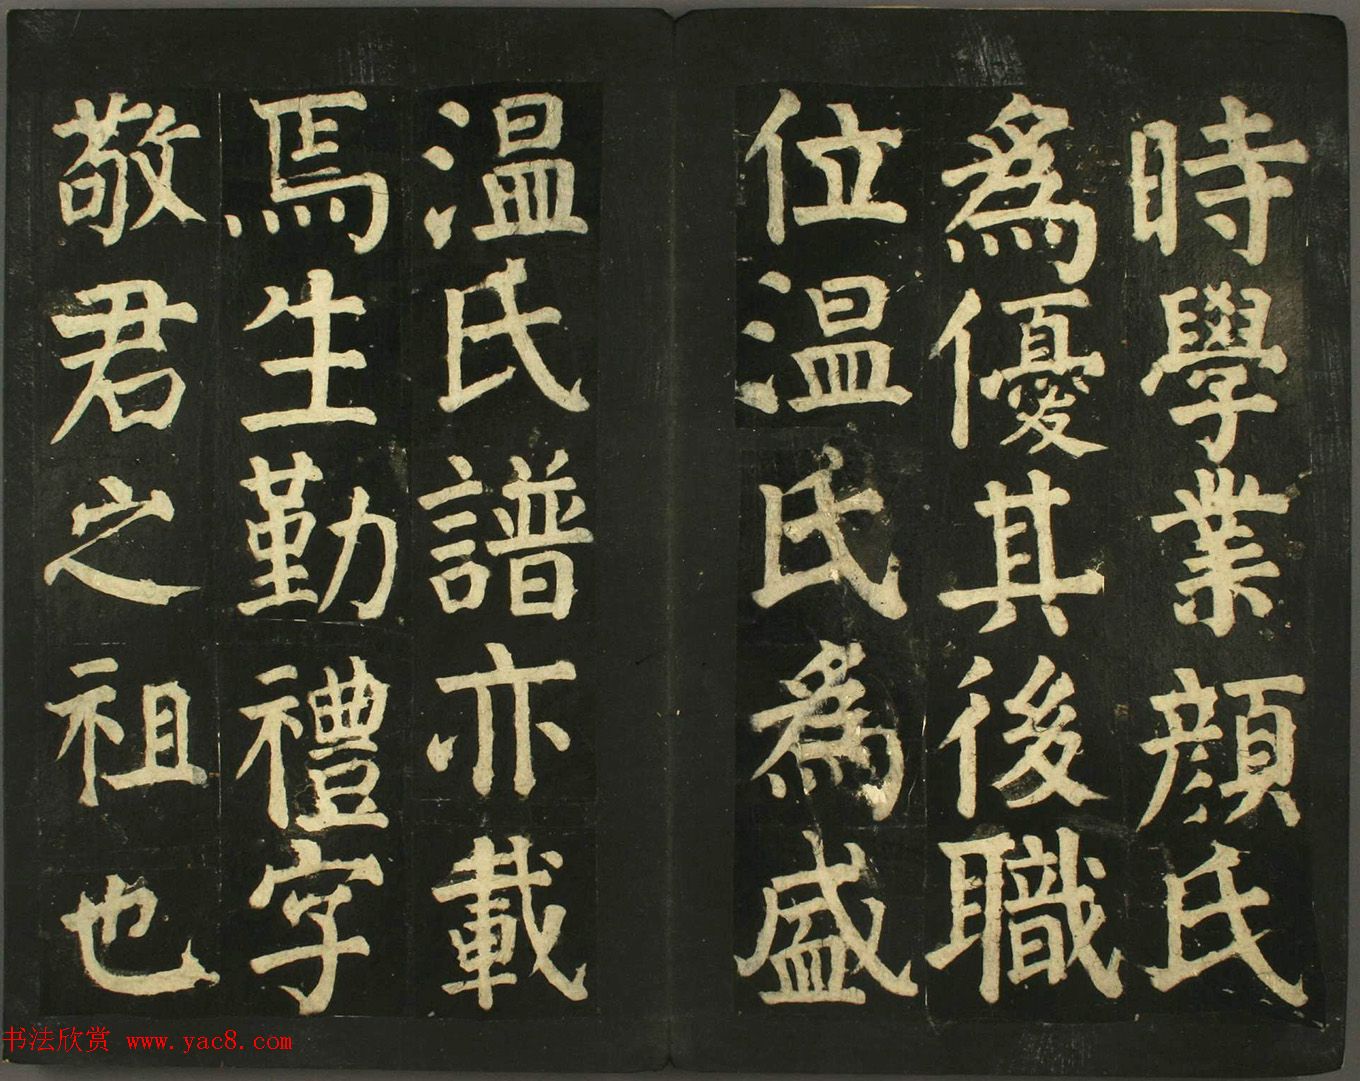 時學業顔氏
為優其後職
位温氏為盛
温氏譜亦載
焉生勤禮字
敬君之祖也
书法欣赏 www.yac8.com